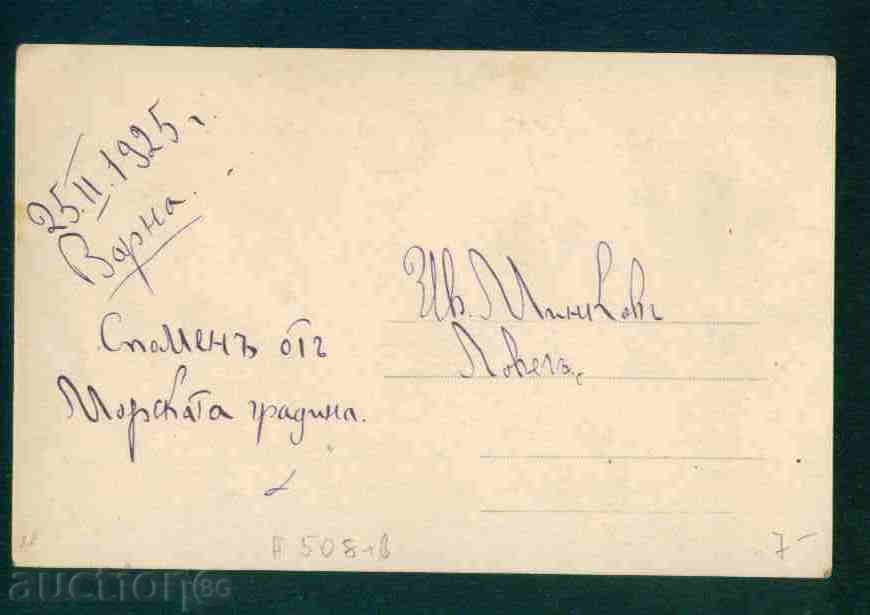 25.II.1925 г.
Варна.
Споменъ отъ
Морската градина.
Ив. Минковъ
Ловечъ
7-
auction.BG